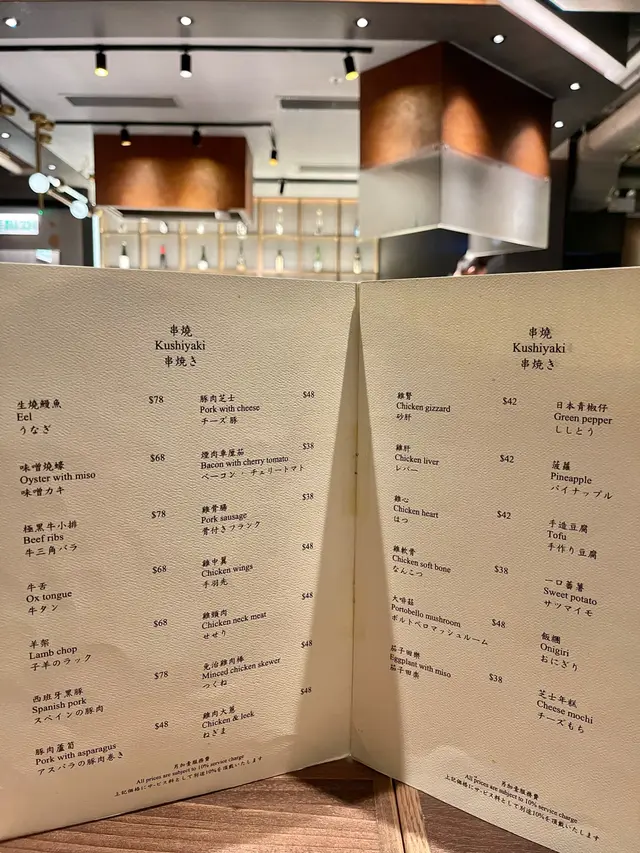 串燒
Kushiyaki
串焼き
生燒鰻魚 $78
Eel
うなぎ
味噌燒蠔 $68
Oyster with miso
味噌カキ
極黑牛小排 $78
Beef ribs
牛三角バラ
牛舌 $68
Ox tongue
牛タン
羊架 $68
Lamb chop
子羊のラック
西班牙黑豚 $78
Spanish pork
スペインの豚肉
豚肉蘆筍 $48
Pork with asparagus
アスパラの豚肉巻き
豚肉芝士 $48
Pork with cheese
チーズ豚
煙肉車厘茄 $38
Bacon with cherry tomato
ベーコン・チェリートマト
雞骨腸 $38
Pork sausage
骨付きフランク
雞中翼 $48
Chicken wings
手羽先
雞頸肉 $48
Chicken neck meat
せせり
免治雞肉棒 $48
Minced chicken skewer
つくね
雞肉大蔥 $48
Chicken & leek
ねぎま
另加壹服務費
All prices are subject to 10% service charge
上記価格にサービス料として別途10%を頂戴いたします
串燒
Kushiyaki
串焼き
雞腎 $42
Chicken gizzard
砂肝
雞肝 $42
Chicken liver
レバー
雞心 $42
Chicken heart
はつ
雞軟骨 $38
Chicken soft bone
なんこつ
大啡菇 $48
Portobello mushroom
ポルトベロマッシュルーム
茄子田樂 $38
Eggplant with miso
茄子田楽
日本青椒仔
Green pepper
ししとう
菠蘿
Pineapple
パイナップル
手造豆腐
Tofu
手作り豆腐
一口蕃薯
Sweet potato
サツマイモ
飯糰
Onigiri
おにぎり
芝士年糕
Cheese mochi
チーズもち
另加壹服務費
All prices are subject to 10% service charge
上記価格にサービス料として別途10%を頂戴いたします